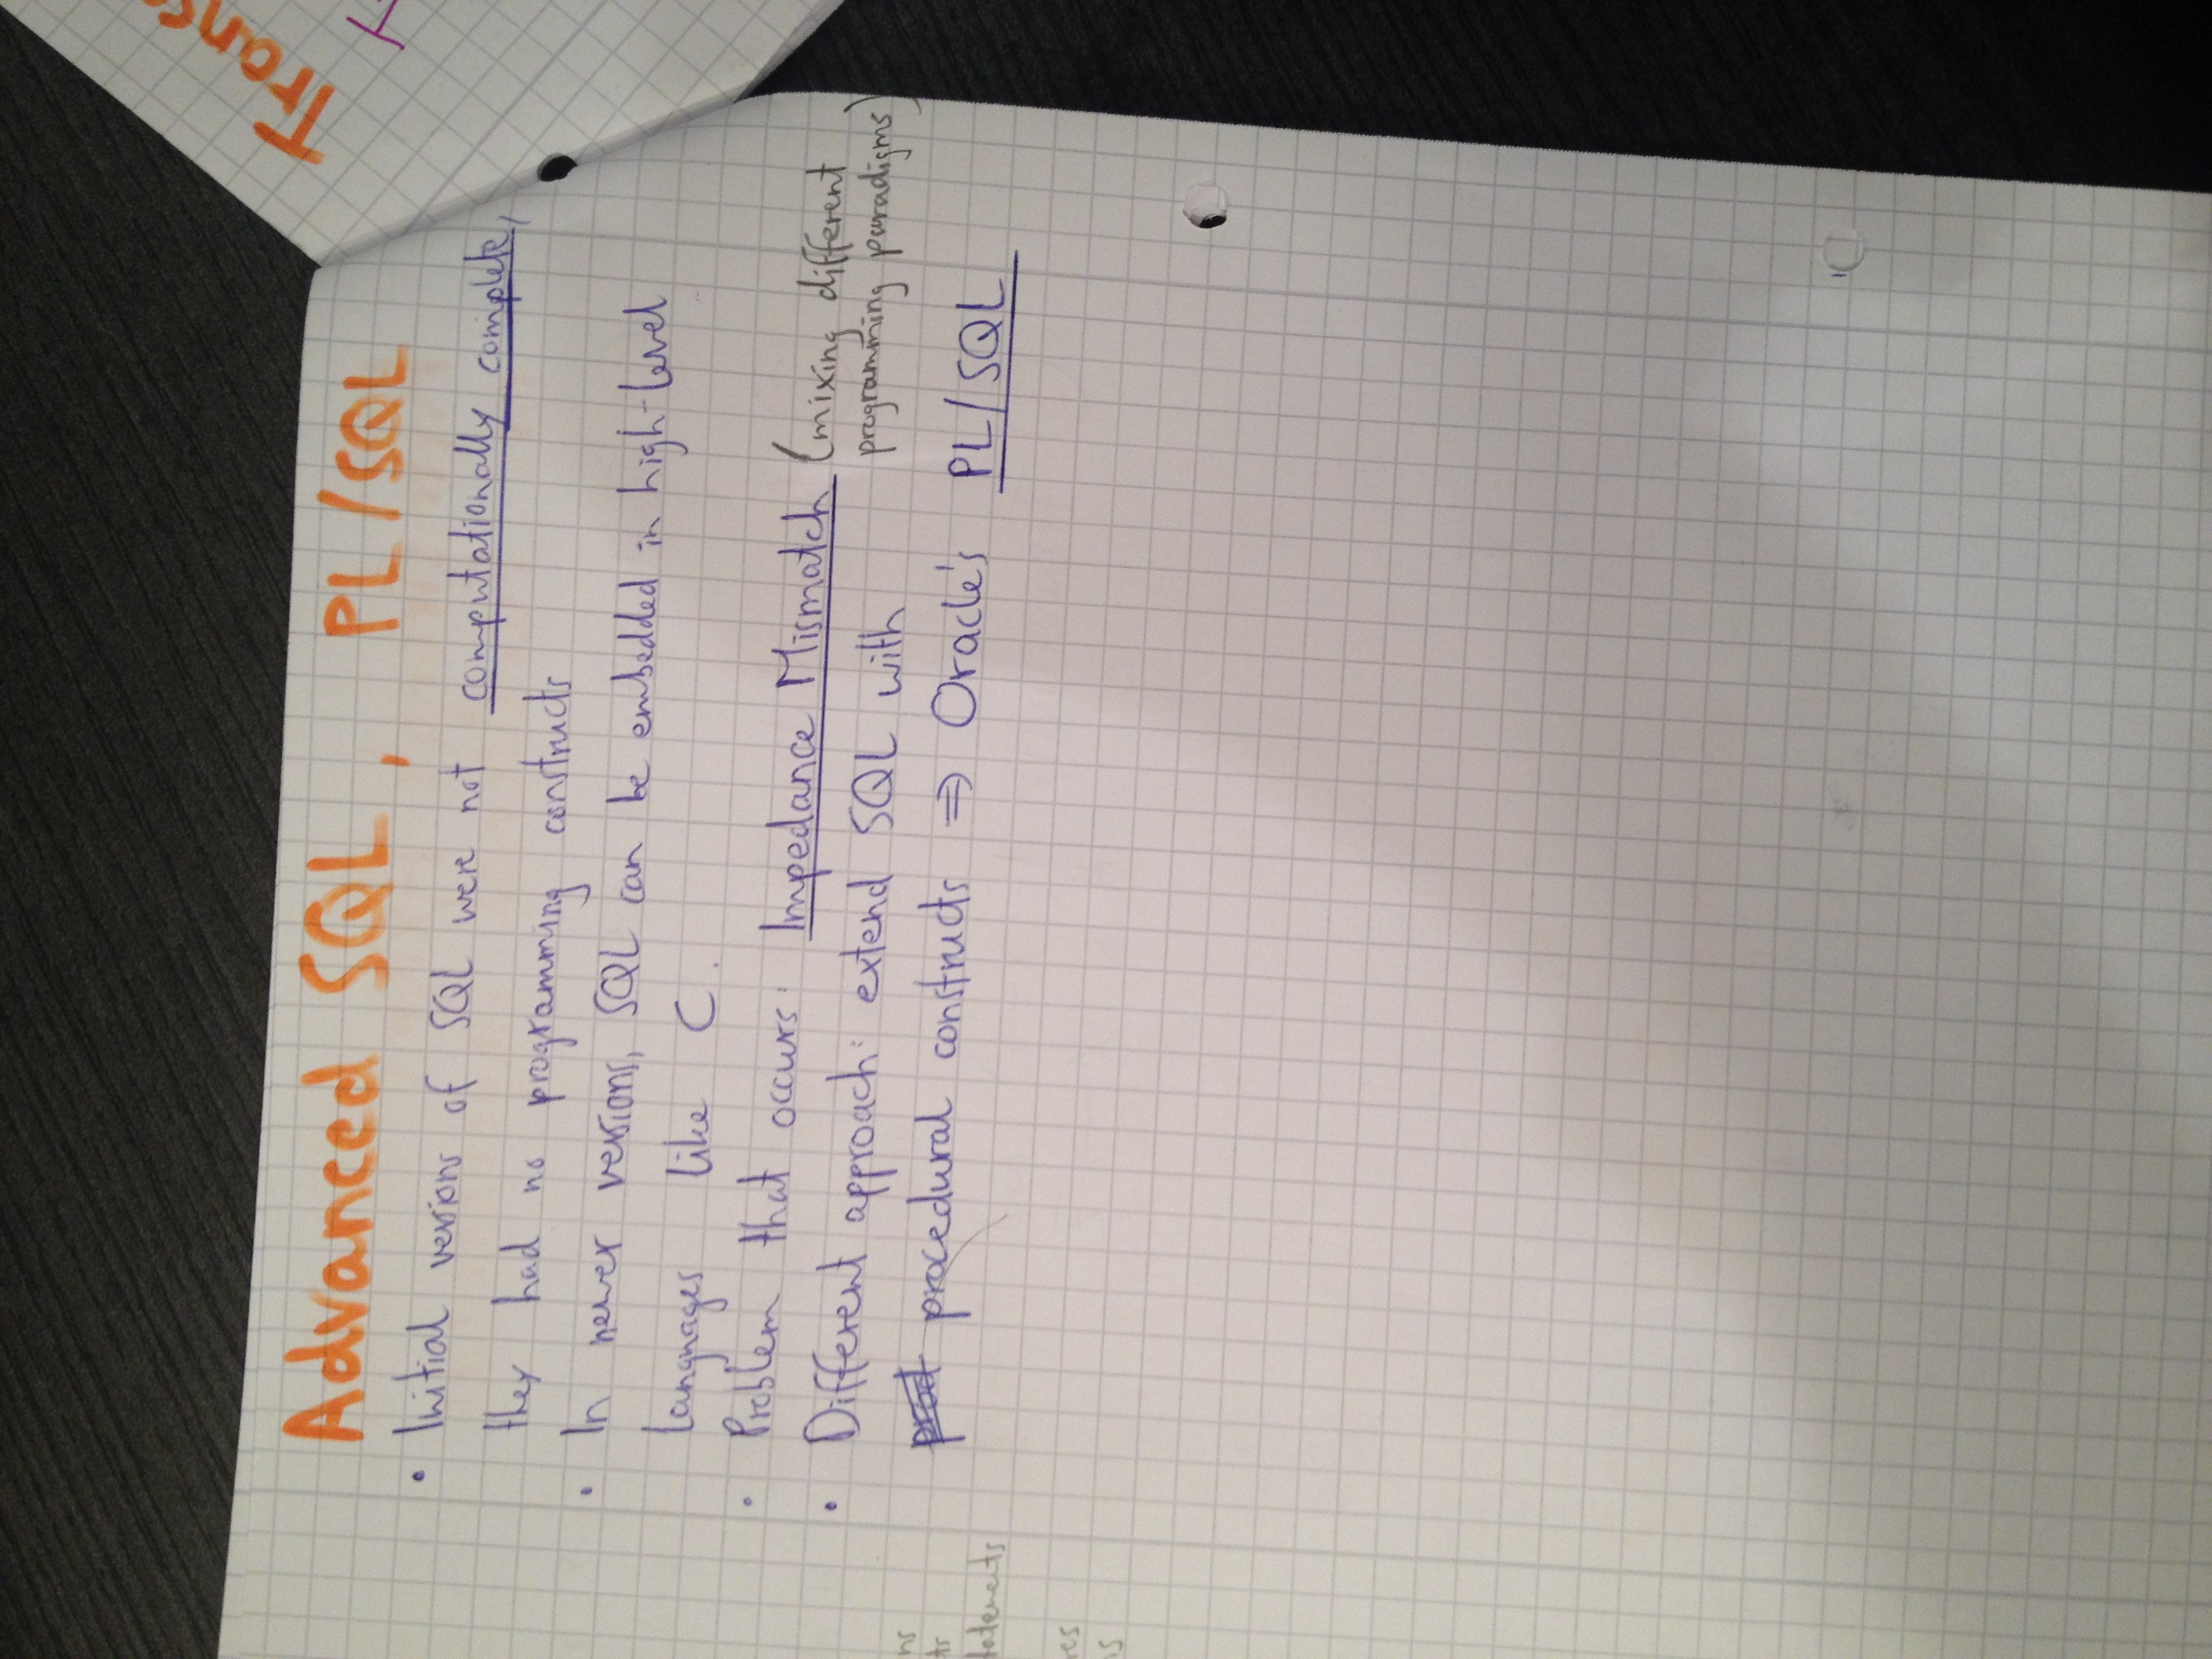 Advanced SQL, PL/SQL
• Initial versions of SQL were not computationally complete,
they had no programming constructs
• In newer versions, SQL can be embedded in high-level
languages like C.
• Problem that occurs: Impedance Mismatch (mixing different
programming paradigms)
• Different approach: extend SQL with
procedural constructs ⇒ Oracle's PL/SQL